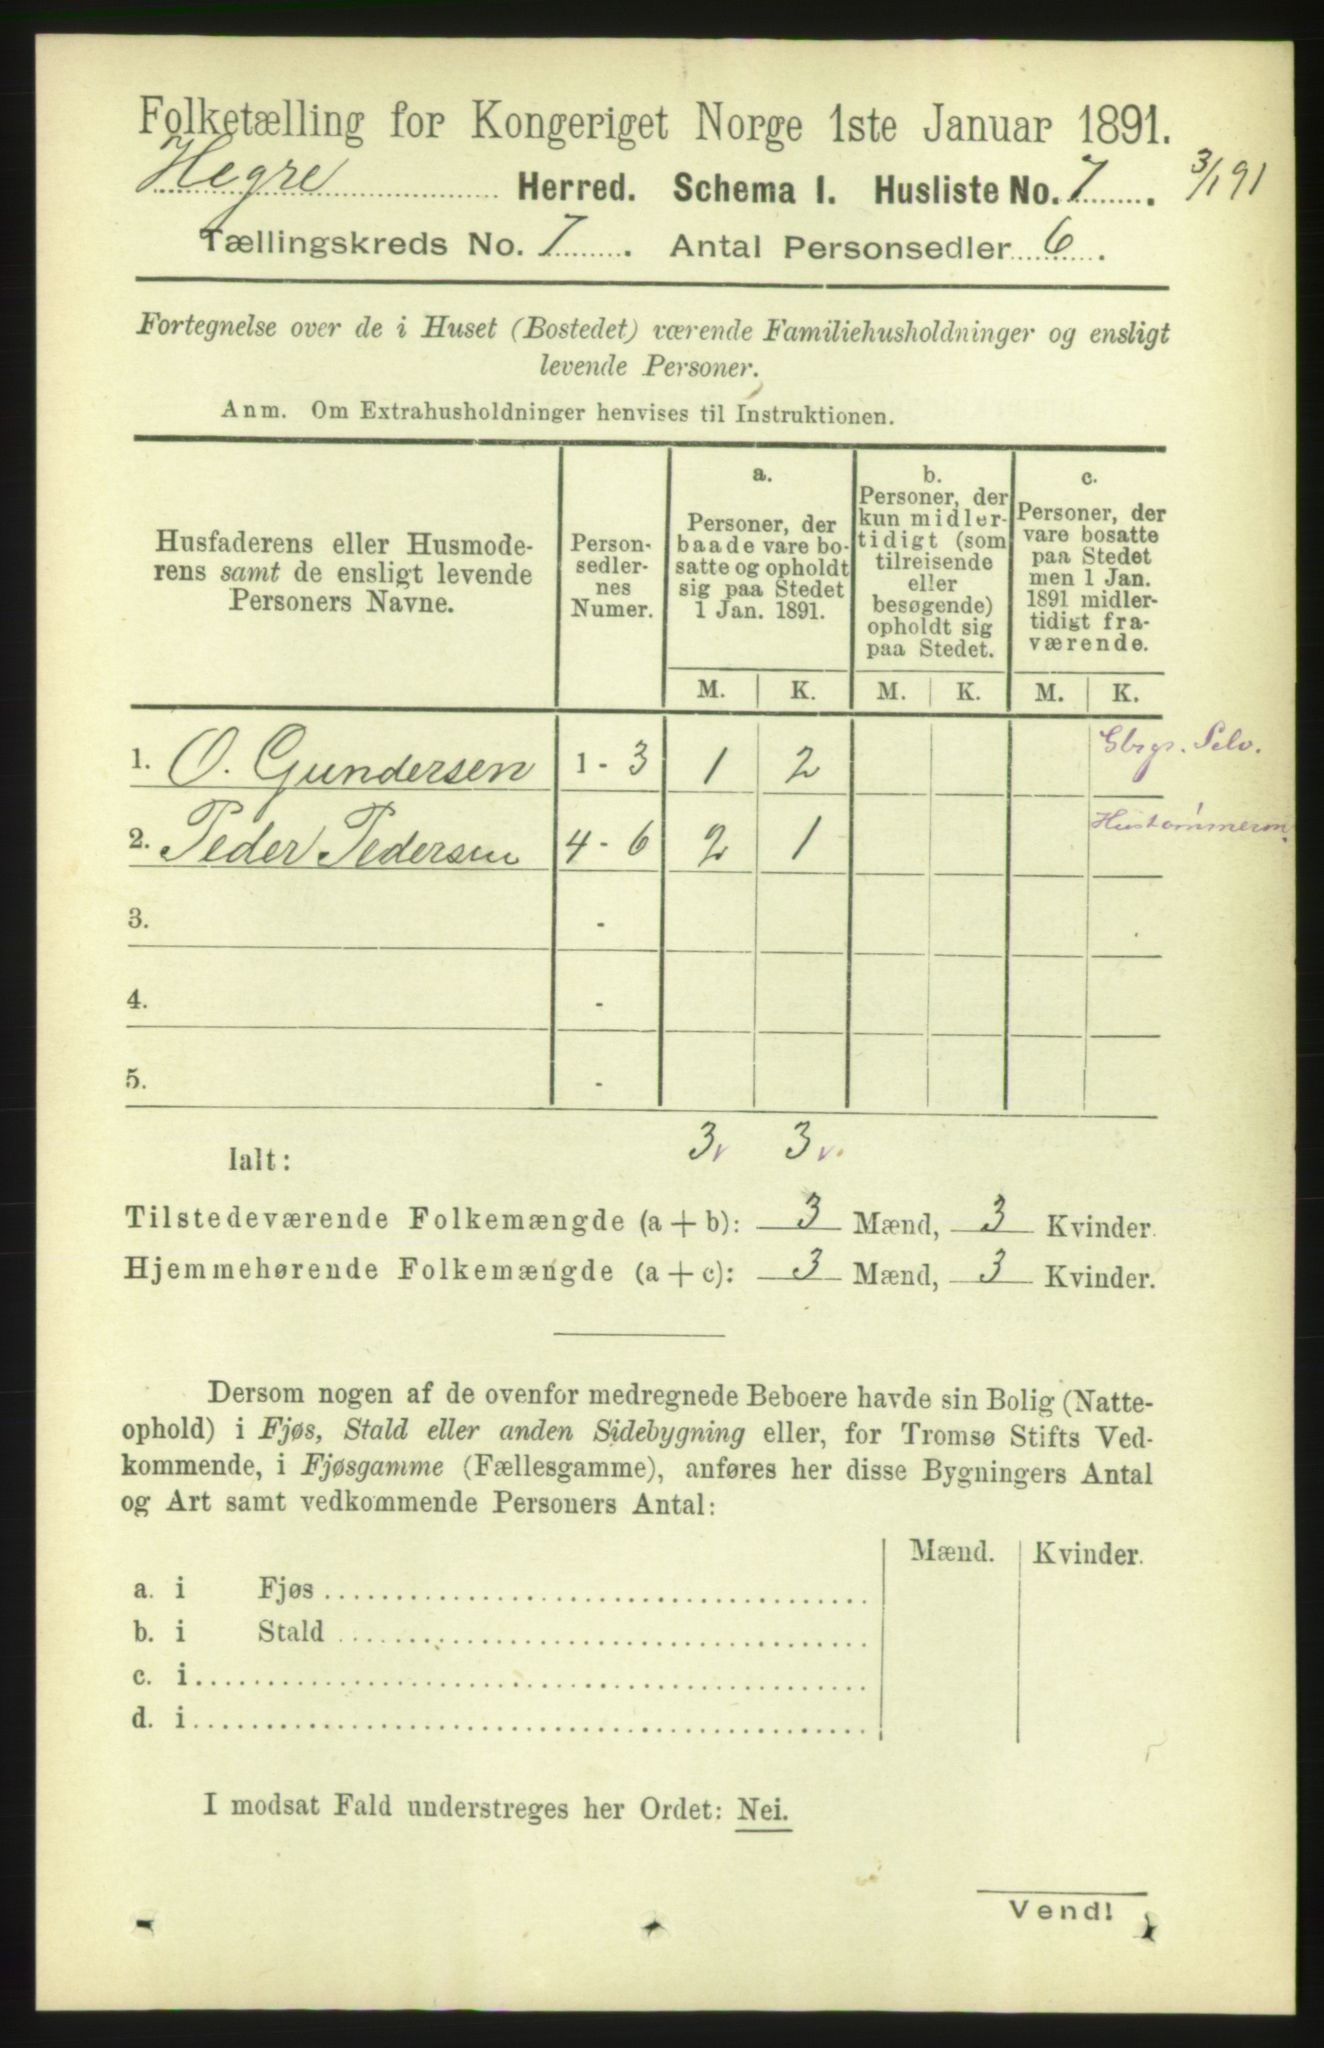 Folketælling for Kongeriget Norge 1ste Januar 1891.
Hegre Herred. Schema I. Husliste No. 7. 3/1 91
Tællingskreds No. 7. Antal Personsedler 6.
Fortegnelse over de i Huset (Bostedet) værende Familiehusholdninger og ensligt
levende Personer.
Anm. Om Extrahusholdninger henvises til Instruktionen.
Husfaderens eller Husmode-
rens samt de ensligt levende
Personers Navne.
Person-
sedler-
nes
Numer.
a.
Personer, der
baade vare bo-
satte og opholdt
sig paa Stedet
1 Jan. 1891.
b.
Personer, der
kun midler-
tidigt (som
tilreisende
eller
besøgende)
opholdt sig
paa Stedet.
c.
Personer, der
vare bosatte
paa Stedet
men 1 Jan.
1891 midler-
tidigt fra-
værende.
M. K. M. K. M. K.
1. O. Gundersen 1 - 3 1 2 Gbrgs. Selv.
2. Peder Pedersen 4 - 6 2 1
3. -
4. -
5. -
Ialt: 3 3
Tilstedeværende Folkemængde (a + b): 3 Mænd, 3 Kvinder.
Hjemmehørende Folkemængde (a + c): 3 Mænd, 3 Kvinder.
Dersom nogen af de ovenfor medregnede Beboere havde sin Bolig (Natte-
ophold) i Fjøs, Stald eller anden Sidebygning eller, for Tromsø Stifts Ved-
kommende, i Fjøsgamme (Fællesgamme), anføres her disse Bygningers Antal
og Art samt vedkommende Personers Antal:
Mænd. Kvinder.
a. i Fjøs
b. i Stald
c. i
d. i
I modsat Fald understreges her Ordet: Nei.
Vend!